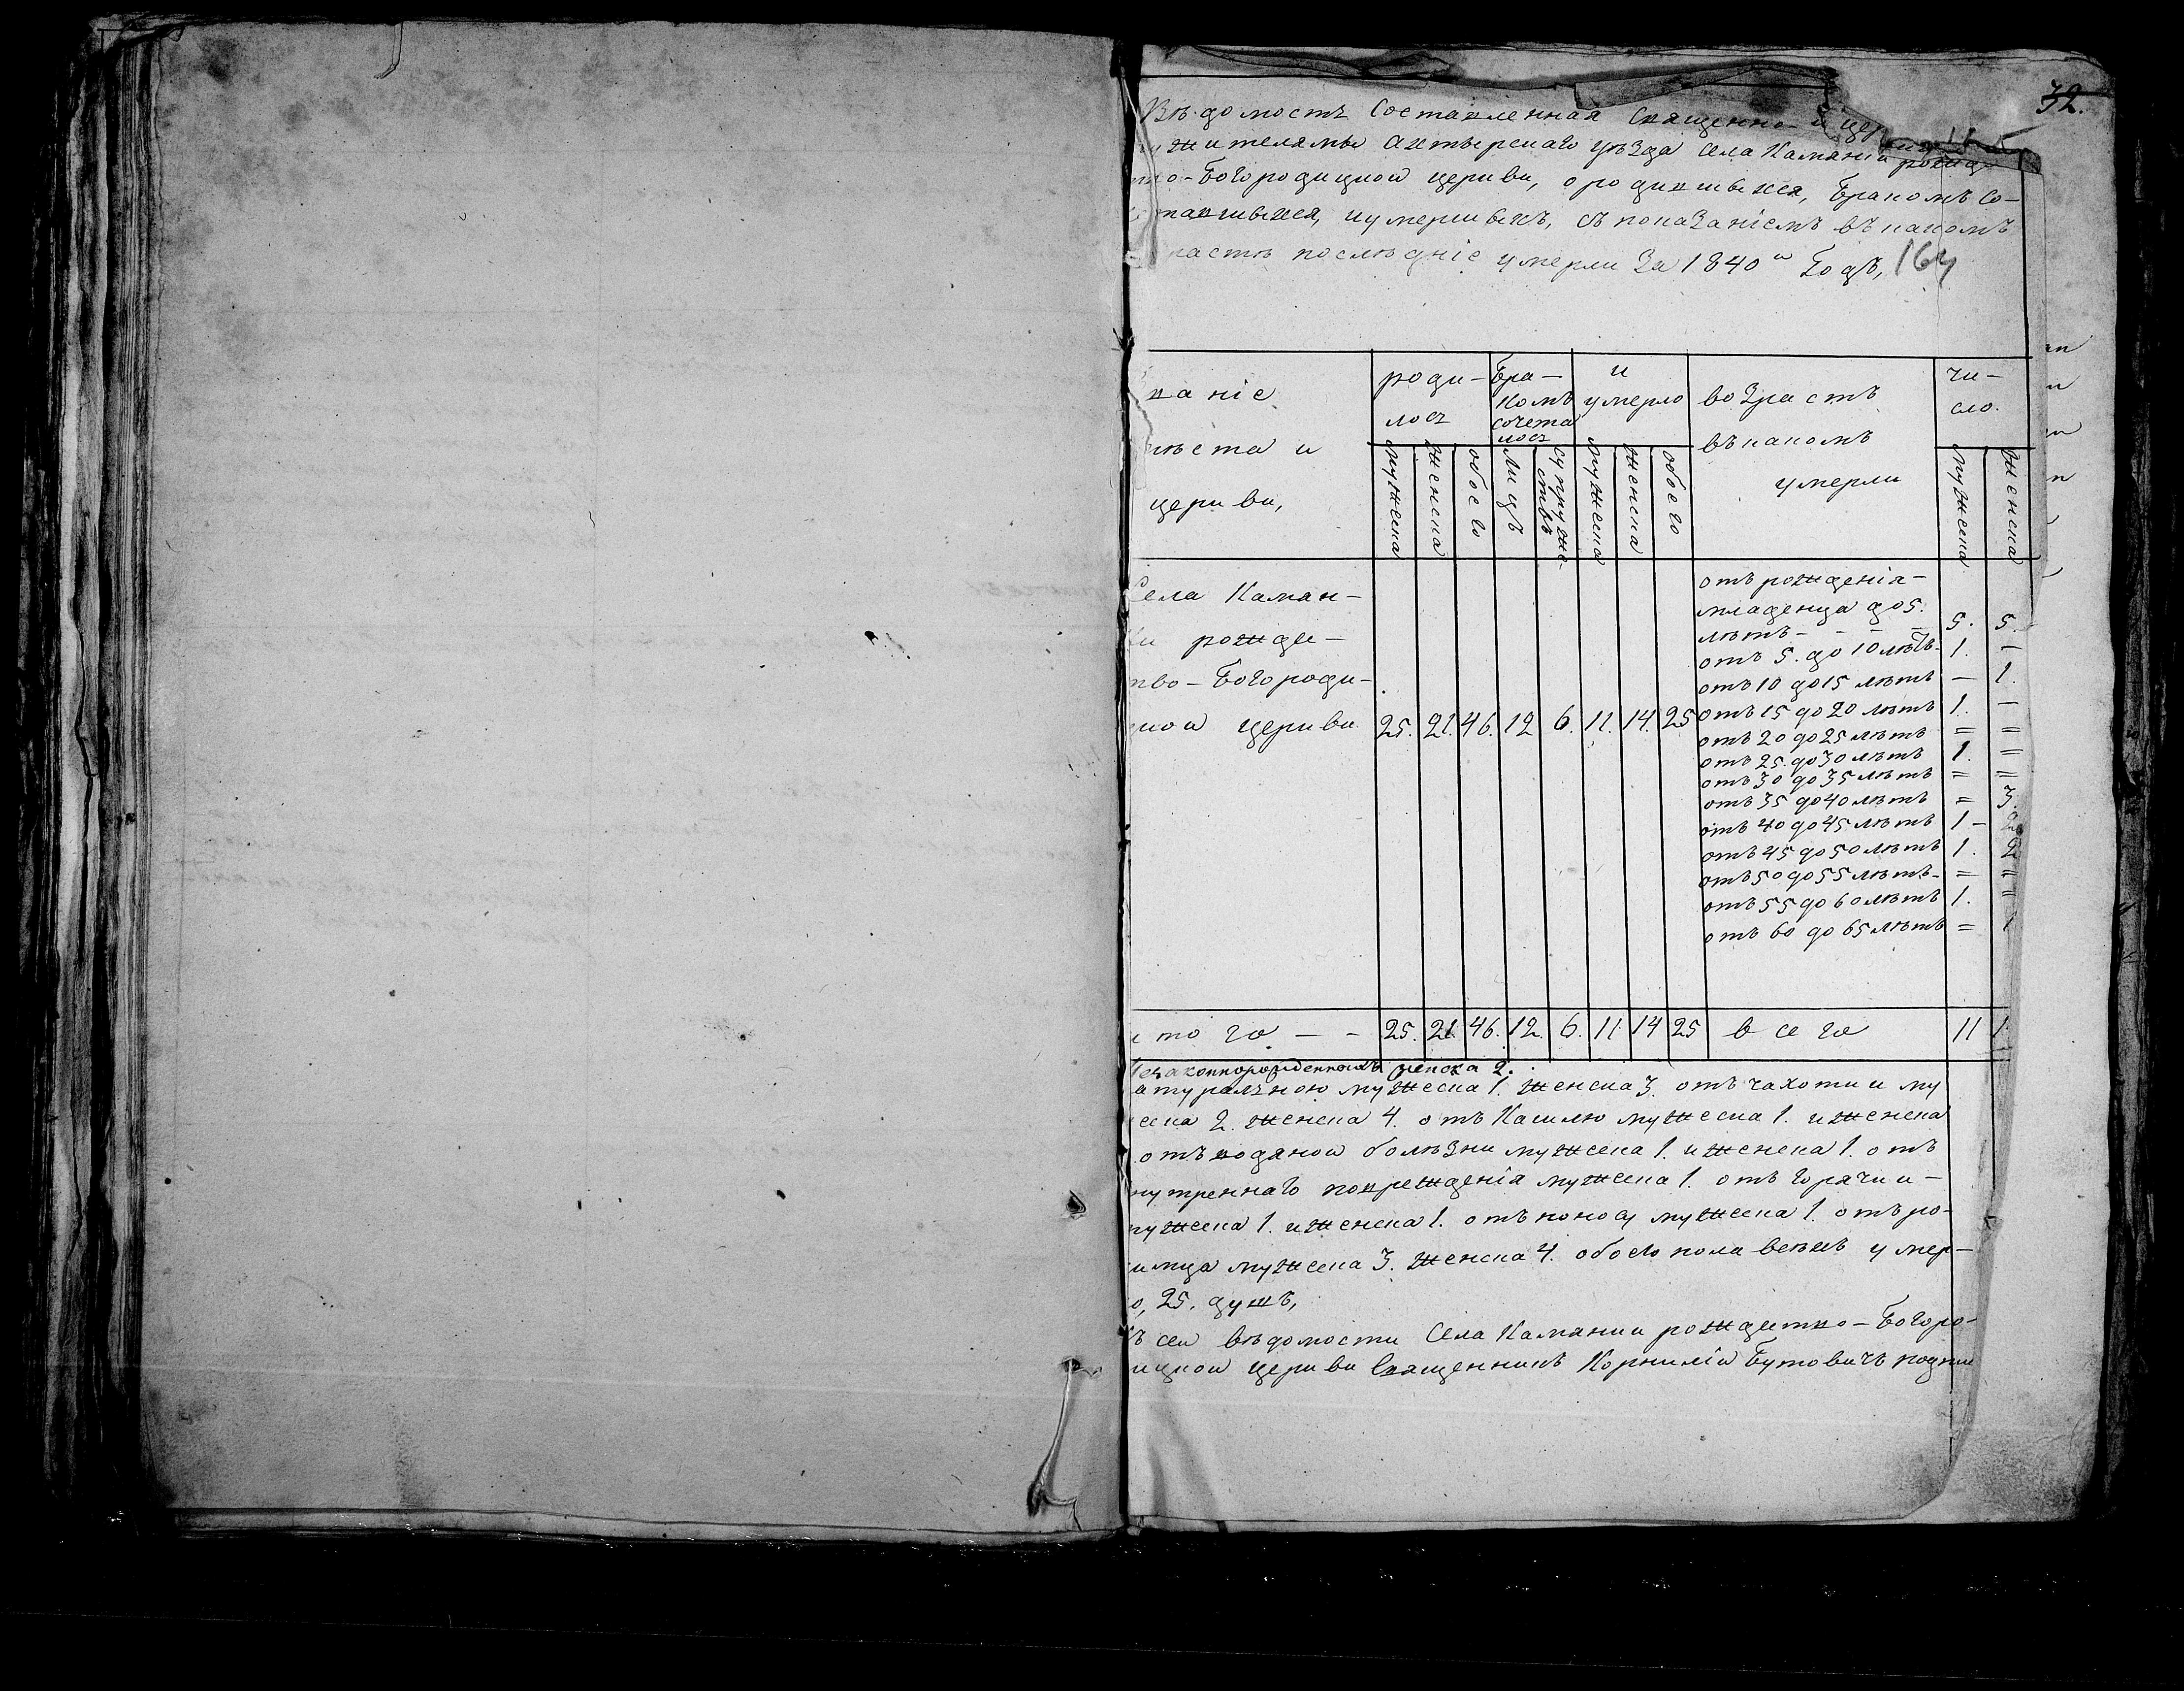 32.
Вѣдомость Составленная Священно- и цер
жителямы Ахтырскаго уѣзда Села Каманки рожде
о-Богородицкой церкви, ородившыхся, Бракомъ Со-
тавшыхся, иумершыхъ, съ показаніемъ въ какомъ
растѣ послѣдніе умерли За 1840й Годъ, 164
ваніе
мѣста и
церкви,
роди-
лось
Бра-
комъ
сочета
лось
и
умерло
возрастъ
въ какомъ
умерли
чи-
сло.
мужеска
женска
обоего
лицъ
супруже-
ствъ
мужеска
женска
обоего
мужеска
женска
Села Каман-
ки рожде-
тво-Богороди-
цкой церкви 25. 21. 46. 12 6. 11. 14. 25
отъ рожденія-
младенца до 5.
лѣтъ - - - - 5. 5.
отъ 5. до 10 лѣтъ- 1. -
отъ 10 до 15 лѣтъ - 1.
отъ 15 до 20 лѣтъ 1. -
отъ 20 до 25 лѣтъ = =
отъ 25. до 30 лѣтъ 1. =
отъ 30 до 35 лѣтъ = =
отъ 35 до 40 лѣтъ = 3.
отъ 40 до 45 лѣтъ 1 - 2
отъ 45 до 50 лѣтъ 1. 2
отъ 50 до 55 лѣтъ- = =
отъ 55 до 60 лѣтъ 1. =
отъ 60 до 65 лѣтъ = 1
и то го - - 25. 21 46. 12. 6. 11. 14 25 в се го 11 1
Незаконнорожденныхъ женска 2.
атуральною мужеска 1. женска 3. отъ чахотки му
еска 2. женска 4. отъ Кашлю мужеска 1. и женска
отъ водяной болѣзни мужеска 1. и женска 1. отъ
нутреннаго поврежденія мужеска 1. отъ Горячки-
мужеска 1. и женска 1. отъ поносу мужеска 1. отъ ро-
имца мужеска 3. женска 4. обоего пола всѣхъ умер-
о, 25. душъ,
ъ сей вѣдомости Села Каманки рождетво-Богоро-
ицкой церкви Священникъ Корнилій Бутовичъ подпи